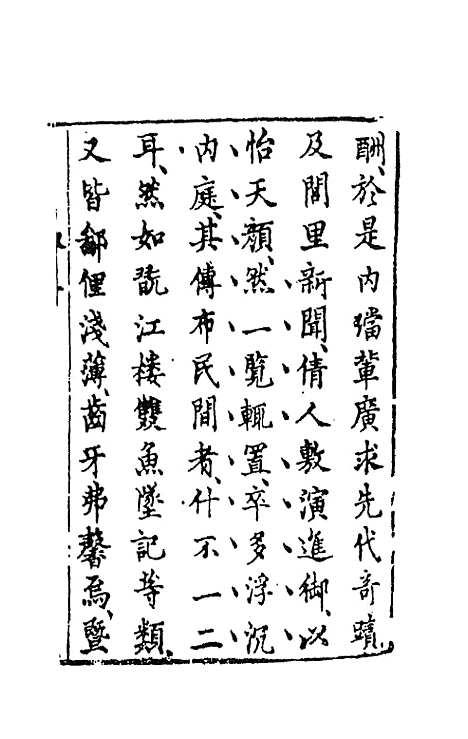 酬、於是内璫輩廣求先代奇蹟、
及閭里新聞、倩人敷演進御、以
怡天顏、然一覽輒置、卒多浮沉
内庭、其傳布民間者、什不一二
耳、然如翫江楼雙魚墜記等類、
又皆鄙俚淺薄、齒牙弗馨焉、暨